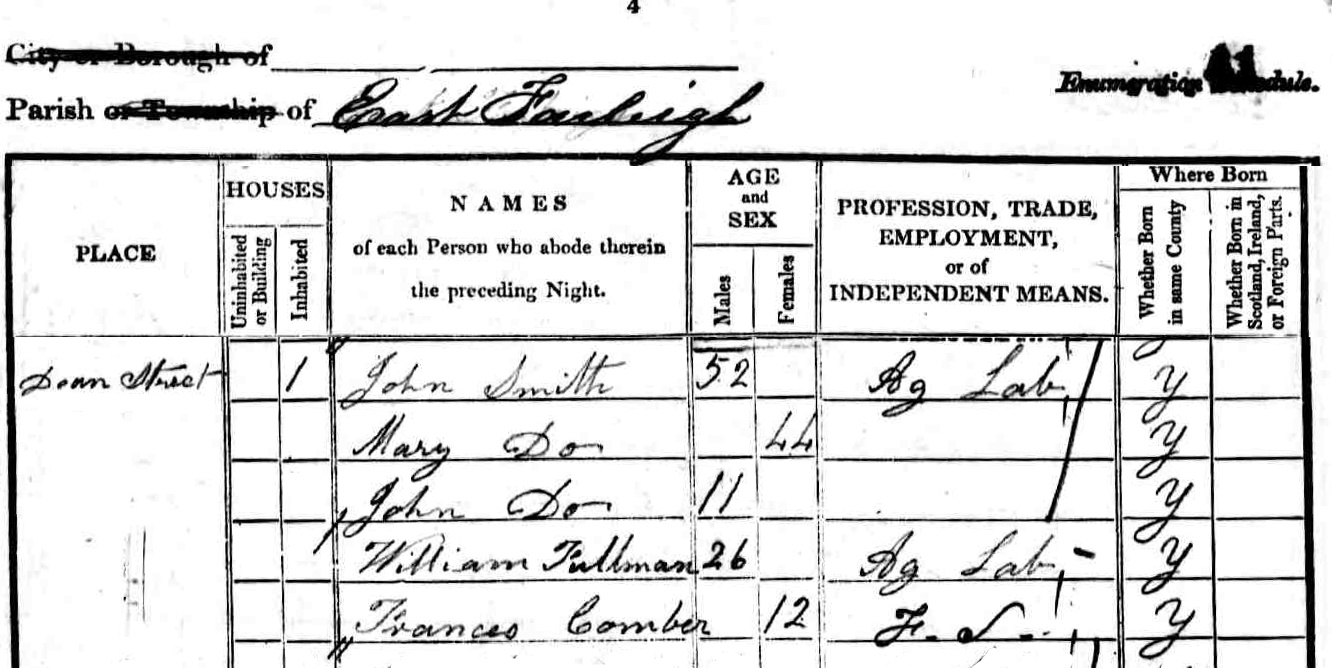 4
City or Borough of
Enumeration Schedule.
Parish or Township of East Farleigh
PLACE
HOUSES
Uninhabited or Building
Inhabited
NAMES
of each Person who abode therein
the preceding Night.
AGE
and
SEX
Males
Females
PROFESSION, TRADE,
EMPLOYMENT,
or of
INDEPENDENT MEANS.
Where Born
Whether Born in same County
Whether Born in Scotland, Ireland, or Foreign Parts.
Dean Street 1 John Smith 52 Ag Lab Y
Mary Do 44 Y
John Do 11 Y
William Tullman 26 Ag Lab Y
Frances Comber 12 F. S. Y